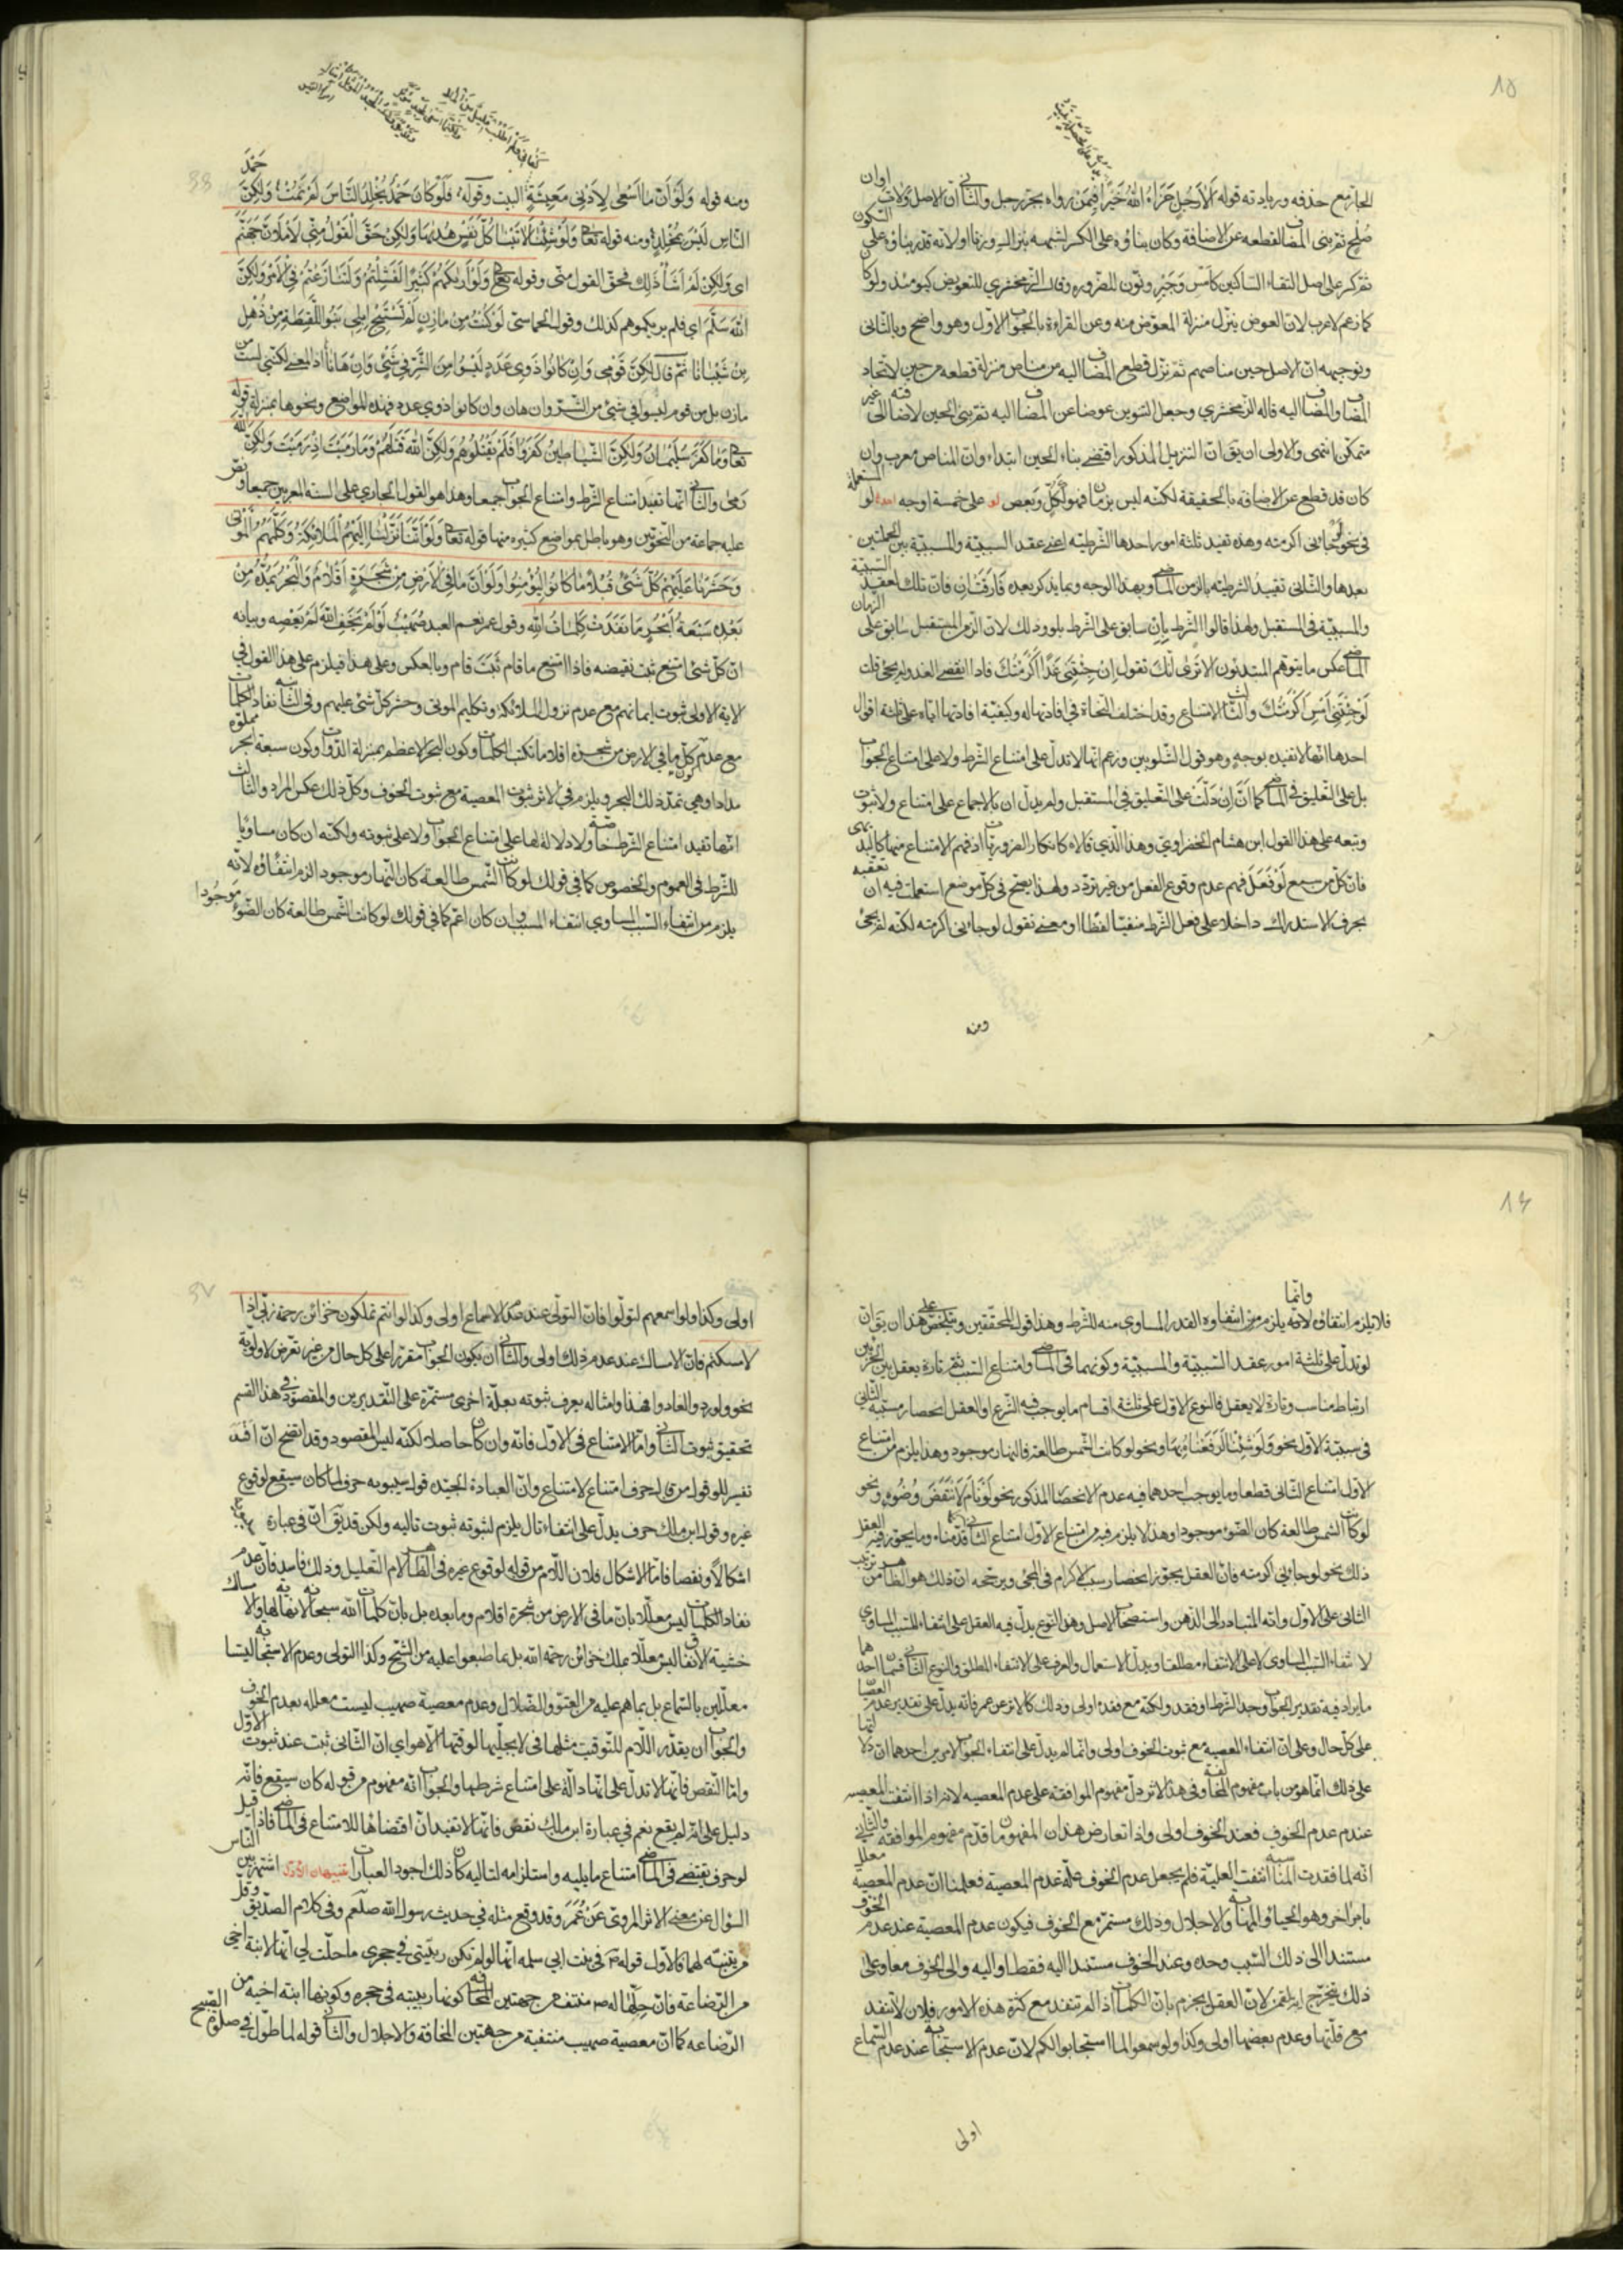 ١٥
الجار مع حذفه وزيادته قوله أَلَا رَجُلٍ جَزَاهُ اللهُ خَيْرًا فيمن رواه بجر رجل والثاني أن الاصل ولات اوان
صلح ثم بنى المضاف لقطعه عن الاضافة وكان بناؤه على الكسر لشبهه بنزال وزنا او لانه قدر بناؤه على السكون
ثم كسر على اصل التقاء الساكنين كأمسِ وجَيرِ ونون للضروره وقال الزمخشري للتعويض كيومئذ ولو كان
كما زعم لاعرب لان العوض ينزل منزلة المعوض منه وعن القراءة بالجواب الاول وهو واضح وبالثاني
وتوجيهه ان الاصل حين مناصهم ثم نزل قطع المضاف اليه من مناص منزلة قطعه من حين لاتحاد
المضاف والمضاف اليه قاله الزمخشري وجعل التنوين عوضا عن المضاف اليه ثم بنى الحين لاضافته الى غير
متمكن انتهى والاولى ان يق ان التنزيل المذكور اقتضى بناء الحين ابتداء وان المناص معرب وان
كان قد قطع عن الاضافه بالحقيقة لكنه ليس بزمان فهو ككلٍّ وبعضٍ لو على خمسة اوجه احدها لو المستعملة
في نحو لو جاءني اكرمته وهذه تفيد ثلثة امور احدها الشرطيته اعنى عقد السببيّة والمسببيّة بين الجملتين
بعدها والثاني تقييد الشرطيته بالزمن الماضي وبهذا الوجه وبما يذكر بعده فَارَقَتْ إن فان تلك لعقد السببيّة
والمسببيّة في المستقبل ولهذا قالوا الشرط بإن سابق على الشرط بلو وذلك لان الزمن المستقبل سابق على الزمان
الماضي عكس ما يتوهم المبتدئون الا ترى انّك تقول إن جِئْتَني غَدًا أَكرَمْتُكَ فاذا انقضى الغد ولم يجئ قلت
لَوْ جِئْتَنِي أَمْسِ أَكْرَمْتُكَ والثالث الامتناع وقد اختلف النحاة في افادتها له وكيفيّة افادتها اياه على ثلثة اقوال
احدها انها لا تفيده بوجهٍ وهو قول الشلوبين وزعم انها لا تدلّ على امتناع الشرط ولا على امتناع الجواب
بل على التعليق في الماضي كما انَّ إن دلّت على التعليق في المستقبل ولم يدلّ ان بالاجماع على امتناع ولا ثبوت
وتبعه على هذا القول ابن هشام الخضراويّ وهذا الّذي قالاه كانكار الضروريات اذ فهم الامتناع منها كالبديهي
فانّ كلّ من سمع لَوْ فَعَلَ فهم عدم وقوع الفعل من غير تردّد ولهذا يصحّ في كلّ موضع استعملت فيه ان تعقّبه
بحرف الاستدراك داخلا على فعل الشرط منفيّا لفظا او معنى تقول لو جاءني اكرمته لكنّه لم يجئ
ومنه
كفاني ولم اطلب قليل من المال
ومنه قوله وَلَوْ أَنَّ مَا أَسْعَى لِأَدْنَى مَعِيشَةٍ البيت وقوله فَلَوْ كَانَ حَمْدٌ يُخْلِدُ النَّاسَ لَمْ تَمُتْ وَلكِنَّ حَمْدَ
النَّاسِ لَيْسَ بِمُخْلِدٍ ومنه قوله تعالى وَلَوْ شِئْنَا لَآتَيْنَا كُلَّ نَفْسٍ هُدَيهَا وَلكِنْ حَقَّ الْقَوْلُ مِنِّي لَأَمْلَأَنَّ جَهَنَّمَ
اى وَلكِنْ لَمْ أَشَأْ ذلِكَ فحقّ القول منّى وقوله تعالى وَلَوْ أَرَيكَهُمْ كَثِيرًا لَفَشِلْتُمْ وَلَتَنَازَعْتُمْ فِي الْأَمْرِ وَلكِنَّ
اللهَ سَلَّمَ اي فلم يريكموهم كذلك وقول الحماسيّ لَوْ كُنْتُ مِنْ مازِنٍ لَمْ تَسْتَبِحْ إِبِلِي بَنُو اللَّقِيطَةِ مِنْ ذُهْلِ
بْنِ شَيْبَانَا ثمّ قال لكِنَّ قَوْمِي وَإِنْ كَانُوا ذَوِي عَدَدٍ لَيْسُوا مِنَ الشَّرِّ فِي شَيْءٍ وَإِنْ هَانَا اذ المعنى لكنّني لست من
مازن بل من قوم ليسوا في شئ من الشرّ وان هان وان كانوا ذوي عدد فهذه المواضع ونحوها بمنزلة قوله
تعالى وَمَا كَفَرَ سُلَيْمَانُ وَلكِنَّ الشَّيَاطِينَ كَفَرُوا فَلَمْ تَقْتُلُوهُمْ وَلكِنَّ اللهَ قَتَلَهُمْ وَمَا رَمَيْتَ إِذْ رَمَيْتَ وَلكِنَّ اللهَ
رَمَى والثاني انها تفيد امتناع الشرط وامتناع الجواب جميعا وهذا هو القول الجاري على السنة المعربين جميعا ونصّ
عليه جماعة من النحويّين وهو باطل بمواضع كثيره منها قوله تعالى وَلَوْ أَنَّنَا نَزَّلْنَا إِلَيْهِمُ الْمَلَائِكَةَ وَكَلَّمَهُمُ الْمَوْتَى
وَحَشَرْنَا عَلَيْهِمْ كُلَّ شَيْءٍ قُبُلًا مَا كَانُوا لِيُؤْمِنُوا وَلَوْ أَنَّ مَا فِي الْأَرْضِ مِنْ شَجَرَةٍ أَقْلَامٌ وَالْبَحْرُ يَمُدُّهُ مِنْ
بَعْدِهِ سَبْعَةُ أَبْحُرٍ مَا نَفِدَتْ كَلِمَاتُ اللهِ وقول عمر نعم العبد صُهَيْبٌ لَوْ لَمْ يَخَفِ اللهَ لَمْ يَعْصِه وبيانه
انّ كلّ شئ امتنع ثبت نقيضه فاذا امتنع ما قام ثَبَتَ قام وبالعكس وعلى هذا فيلزم على هذا القول في
الاية الاولى ثبوت ايمانهم مع عدم نزول الملائكه وتكليم الموتى وحشر كلّ شئ عليهم وفي الثانيه نفاد الكلمات
مع عدم كون كلّ ما في الارض من شجرة اقلاما تكتب الكلمات وكون البحر الاعظم بمنزلة الدواة وكون سبعة ابحر مملوه
مدادا وهي تمدّ ذلك البحر ويلزم في الاثر ثبوت المعصية مع ثبوت الخوف وكلّ ذلك عكس المراد والثالث
انها تفيد امتناع الشرط خاصّة ولا دلالة لها على امتناع الجواب ولا على ثبوته ولكنّه ان كان مساويا
للشرط في العموم والخصوص كما في قولك لو كانت الشمس طالعة كان النهار موجود الزم انتفاؤه لانّه
يلزم من انتفاء السبب المساوي انتفاء المسبب وان كان اعمّ كما في قولك لو كانت الشمس طالعة كان الضوء موجودا
١٦
فلا يلزم انتفاؤه لانّه وانّما يلزم من انتفاؤه القدر المساوى منه للشرط وهذا قول المحقّقين ويتلخّص على هذا ان يق انّ
لو تدلّ على ثلثة امور عقد السببيّة والمسببيّة وكونهما في الماضي وامتناع السبب ثم تارة يعقل بين الجزئين
ارتباط مناسب وتارة لا يعقل فالنوع الاوّل على ثلثة اقسام ما يوجب فيه الشرع او العقل انحصار مسببيّة الثاني
في سببيّة الاوّل نحو وَلَوْ شِئْنَا لَرَفَعْنَاهُ بِهَا ونحو لو كانت الشمس طالعة فالنهار موجود وهذا يلزم من امتناع
الاوّل امتناع الثاني قطعا وما يوجب احدهما فيه عدم الانحصار المذكور نحو لَوْ نَامَ لَانْتَقَضَ وُضُوءُه ونحو
لو كانت الشمس طالعة كان الضوء موجودا وهذا لا يلزم فيه من امتناع الاوّل امتناع الثاني كما قدّمناه وما يجوز فيه العقل
ذلك نحو لو جاءني اكرمته فانّ العقل يجوّز انحصار سبب الاكرام في المجئ ويرجّحه انّ ذلك هو الظاهر من ترتيب
الثاني على الاوّل وانّه المتبادر الى الذهن واستصحاب الاصل وهذا النوع يدلّ فيه العقل على انتفاء المسبب المساوى
لانتفاء السبب المساوى لا على الانتفاء مطلقا ويدلّ الاستعمال والعرف على الانتفاء المطلق والنوع الثاني قسمان احدهما
ما يراد فيه تقدير الجواب وجد الشرط او فقد ولكنّه مع فقده اولى وذلك كالاثر عن عمر فانّه يدلّ على تقدير عدم العصيان
على كلّ حال وعلى انّ انتفاء المعصيه مع ثبوت الخوف اولى وانّما لم يدلّ على انتفاء الجواب لامرين احدهما انّ دلالتها
على ذلك انّما هو من باب مفهوم المخالفة وفي هذا الاثر دلّ مفهوم الموافقة على عدم المعصيه لانّه اذا انتفت المعصيه
عند عدم الخوف فعند الخوف اولى واذا تعارض هذان المفهومان قدّم مفهوم الموافقه والثاني
انّه لما فقدت المناسبه انتفت العليّة فلم يجعل عدم الخوف علّة عدم المعصية فعلمنا انّ عدم المعصية معلل
بامر آخر وهو الحياء والمهابه والاجلال وذلك مستمرّ مع الخوف فيكون عدم المعصية عند عدم الخوف
مستندا الى ذلك السبب وحده وعند الخوف مستندا اليه فقط او اليه والى الخوف معا وعلى
ذلك يتخرّج آية لقمن لانّ العقل يجزم بانّ الكلمات اذا لم تنفد مع كثرة هذه الامور فلان لا تنفد
مع قلّتها وعدم بعضها اولى وكذا ولو سمعوا ما استجابوا لكم لانّ عدم الاستجابه عند عدم السماع
اولى
اولى وكذا ولو اسمعهم لتولّوا فانّ التولّى عند عدم الاسماع اولى وكذا لو انتم تملكون خزائن رحمة ربّى اذا
لامسكتم فانّ الامساك عند عدم ذلك اولى والثاني ان يكون الجواب مقررا على كلّ حال من غير تعرّض لاولويّة
نحو ولو ردّوا لعادوا فهذا وامثاله يعرف ثبوته بعلّة اخرى مستمرّة على التقديرين والمقصود في هذا القسم
تحقيق ثبوت الثاني وامّا الامتناع في الاوّل فانّه وان كان حاصلا لكنّه ليس المقصود وقد اتّضح انّ افسد
تفسير للو قول من قال حرف امتناع لامتناع وانّ العبارة الجيّدة قول سيبويه حرف لما كان سيقع لوقوع
غيره وقول ابن مالك حرف يدلّ على انتفاء تال يلزم لثبوته ثبوت تاليه ولكن قد يق انّ في عبارة سيبويه
اشكالًا ونقصا فامّا الاشكال فلان اللام من قوله لوقوع غيره في الظاهر لام التعليل وذلك فاسد فانّ عدم
نفاد الكلمات ليس معلّلا بانّ ما في الارض من شجرة اقلام وما بعده بل بانّ كلمات الله سبحانه لا نهاية لها والامساك
خشية الانفاق ليس معلّلا بملك خزائن رحمة الله بل بما طبعوا عليه من الشحّ وكذا التولى وعدم الاستجابه ليسا
معلّلين بالسماع بل بما هم عليه من العتوّ والضلال وعدم معصية صهيب ليست معلله بعدم الخوف
والجواب ان يقدّر اللام للتوقيت مثلها في لا يجلّيها لوقتها الّا هو اي انّ الثاني ثبت عند ثبوت الاوّل
وامّا النقص فانّها لا تدلّ على انّها دالّة على امتناع شرطها والجواب انّه مفهوم من قوله كان سيقع فانّه
دليل على انّه لم يقع نعم في عبارة ابن مالك نقص فانّها لا تفيد انّ اقتضاءها للامتناع في الماضي فاذا قيل
لو حرف يقتضى في الماضي امتناع ما يليه واستلزامه لتاليه كان ذلك اجود العبارات تنبيهان الاوّل اشتهر بين الناس
السؤال عن معنى الاثر المرويّ عَنْ عُمَرَ وقد وقع مثله في حديث رسول الله صلّعم وفي كلام الصدّيق وقلّ
من يتنبّه لهما فالاوّل قوله ص في بنت ابي سلمه انّها لو لم تكن ربيبتى في حجرى ما حلّت لي انّها لابنة اخي
من الرضاعة فانّ حلّها له ص منتف من جهتين كونها ربيبته في حجره وكونها ابنة اخيه من
الرضاعه كما انّ معصية صهيب منتفية من جهتين المخافة والاجلال والثاني قوله لما طوّل في صلوة الصبح